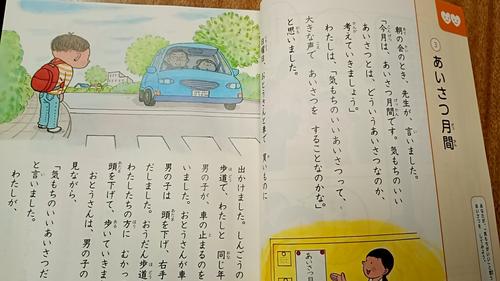 3 あいさつ月間
朝の会のとき、先生が、言いました。
「今月は、あいさつ月間です。気もちのいい
あいさつとは、どういうあいさつなのか、
考えていきましょう」
わたしは、「気もちのいいあいさつって、
大きな声で あいさつを することなのかな。」
と思いました。
あいさつ月
日曜日、おとうさんと車で 買いものに
出かけました。しんごうの
歩道で、わたしと 同じ年
男の子が、車の止まるのを
いました。おとうさんが車
男の子は 頭を下げ、右手
だしました。おうだん歩道
わたしたちの方に むかっ
頭を下げて、歩いていきま
おとうさんは、男の子の
見ながら、
「気もちのいいあいさつだ
と言いました。
わたしが、